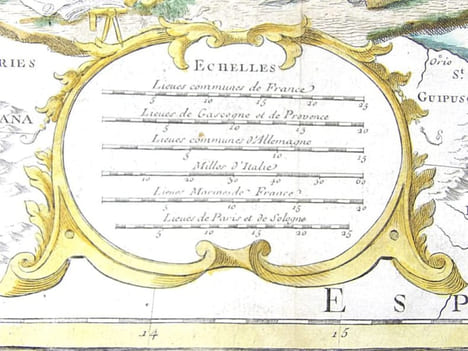 ECHELLES
Lieues communes de France
5 10 15 20 25
Lieues de Gascogne et de Provence
5 10 15
Lieues communes d'Allemagne
5 10 15
Milles d'Italie
10 20 30 40 50 60
Lieues Marines de France
5 10 15 20
Lieues de Paris et de Sologne
5 10 15 20 25
RIES
ANA
Orio
S.t
GUIPUSC
ESP
14 15